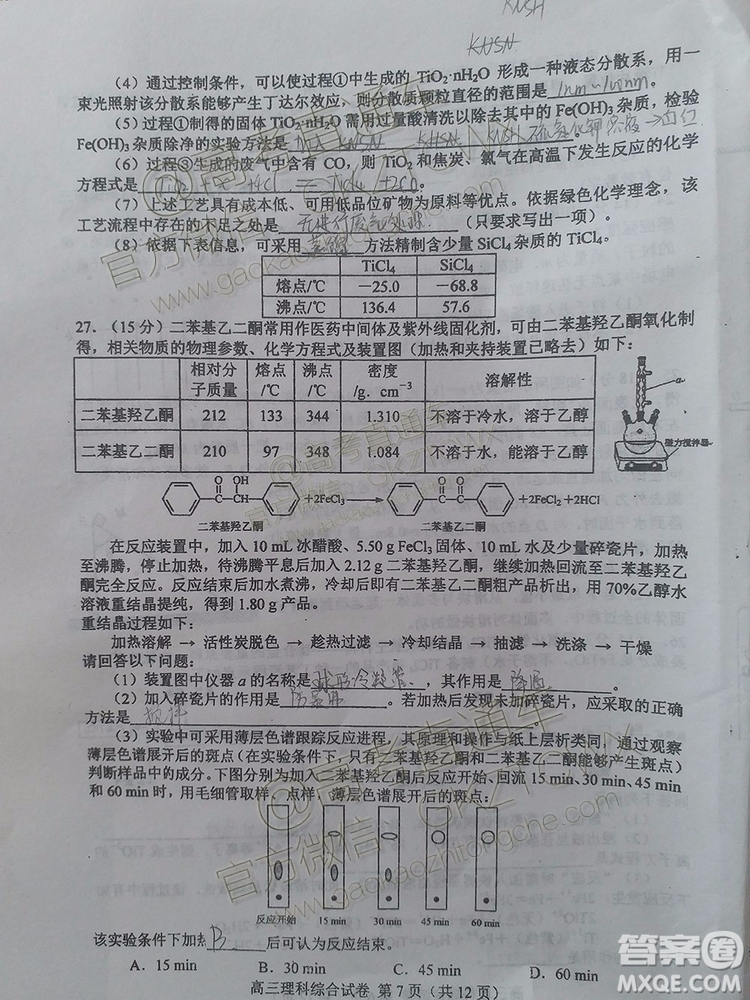 KNSH
KHSN
（4）通过控制条件，可以使过程①中生成的 TiO₂·nH₂O 形成一种液态分散系，用一
束光照射该分散系能够产生丁达尔效应，则分散质颗粒直径的范围是 1nm~100nm 。
（5）过程①制得的固体 TiO₂·nH₂O 需用过量酸清洗以除去其中的 Fe(OH)₃ 杂质，检验
Fe(OH)₃ 杂质除净的实验方法是
（6）过程③生成的废气中含有 CO，则 TiO₂ 和焦炭、氯气在高温下发生反应的化学
方程式是 。
（7）上述工艺具有成本低、可用低品位矿物为原料等优点。依据绿色化学理念，该
工艺流程中存在的不足之处是 （只要求写出一项）。
（8）依据下表信息，可采用 蒸馏 方法精制含少量 SiCl₄ 杂质的 TiCl₄。
TiCl₄ SiCl₄
熔点/℃ −25.0 −68.8
沸点/℃ 136.4 57.6
27.（15 分）二苯基乙二酮常用作医药中间体及紫外线固化剂，可由二苯基羟乙酮氧化制
得，相关物质的物理参数、化学方程式及装置图（加热和夹持装置已略去）如下：
相对分子质量 熔点/℃ 沸点/℃ 密度/g. cm⁻³ 溶解性
二苯基羟乙酮 212 133 344 1.310 不溶于冷水，溶于乙醇
二苯基乙二酮 210 97 348 1.084 不溶于水，能溶于乙醇
a
磁力搅拌器
O OH +2FeCl₃ → O O +2FeCl₂+2HCl
二苯基羟乙酮 二苯基乙二酮
在反应装置中，加入 10 mL 冰醋酸、5.50 g FeCl₃ 固体、10 mL 水及少量碎瓷片，加热
至沸腾，停止加热，待沸腾平息后加入 2.12 g 二苯基羟乙酮，继续加热回流至二苯基羟乙
酮完全反应。反应结束后加水煮沸，冷却后即有二苯基乙二酮粗产品析出，用 70%乙醇水
溶液重结晶提纯，得到 1.80 g 产品。
重结晶过程如下：
加热溶解 → 活性炭脱色 → 趁热过滤 → 冷却结晶 → 抽滤 → 洗涤 → 干燥
请回答以下问题：
（1）装置图中仪器 a 的名称是 球形冷凝管 ，其作用是 。
（2）加入碎瓷片的作用是 防暴沸 。若加热后发现未加碎瓷片，应采取的正确
方法是 。
（3）实验中可采用薄层色谱跟踪反应进程，其原理和操作与纸上层析类同，通过观察
薄层色谱展开后的斑点（在实验条件下，只有二苯基羟乙酮和二苯基乙二酮能够产生斑点）
判断样品中的成分。下图分别为加入二苯基羟乙酮后反应开始、回流 15 min、30 min、45 min
和 60 min 时，用毛细管取样、点样，薄层色谱展开后的斑点：
反应开始 15 min 30 min 45 min 60 min
该实验条件下加热 B 后可认为反应结束。
A．15 min B．30 min C．45 min D．60 min
高三理科综合试卷 第 7 页（共 12 页）
@高考直通车
官方微信：GKZTCWX
www.gaokaozhitongche.com
答案圈
MXQE.COM